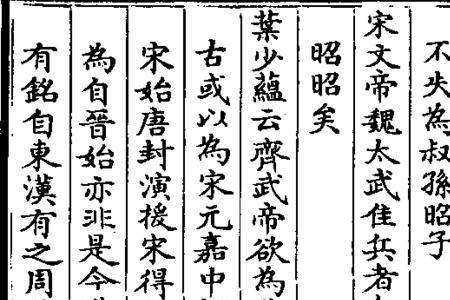 不失為叔孫昭子
宋文帝魏太武佳兵者
昭昭矣
葉少蘊云齊武帝欲為
古或以為宋元嘉中
宋始唐封演援宋得
為自晉始亦非是今
有銘自東漢有之周